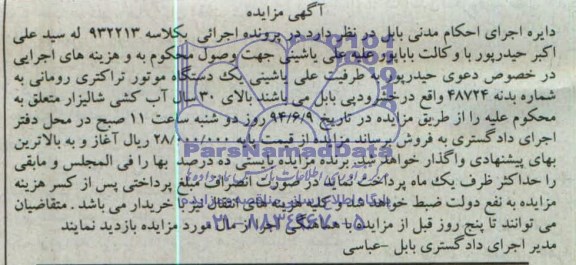 آگهی مزایده
دایره اجرای احکام مدنی بابل در نظر دارد در پرونده اجرائی بکلاسه ۹۳۲۲۱۳ له سید علی
اکبر حیدرپور با وکالت باباپور علیه علی یاشینی جهت وصول محکوم به و هزینه های اجرایی
در خصوص دعوی حیدرپور به طرفیت علی یاشینی یک دستگاه موتور تراکتری رومانی به
شماره بدنه ۴۸۷۲۴ واقع در خشرودپی بابل می باشند بالای ۳۰ سال آب کشی شالیزار متعلق به
محکوم علیه را از طریق مزایده در تاریخ ۹۴/۶/۹ روز دو شنبه ساعت ۱۱ صبح در محل دفتر
اجرای دادگستری به فروش برساند مزایده از قیمت پایه ۲۸/۰۰۰/۰۰۰ ریال آغاز و به بالاترین
بهای پیشنهادی واگذار خواهد شد. برنده مزایده بایستی ده درصد بها را فی المجلس و مابقی
را حداکثر ظرف یک ماه پرداخت نماید در صورت انصراف مبلغ پرداختی پس از کسر هزینه
مزایده به نفع دولت ضبط خواهد شد و کلیه هزینه های انتقال نیز با خریدار می باشد . متقاضیان
می توانند تا پنج روز قبل از مزایده با هماهنگی اجرا از مال مورد مزایده بازدید نمایند
مدیر اجرای دادگستری بابل -عباسی
ParsNamadData